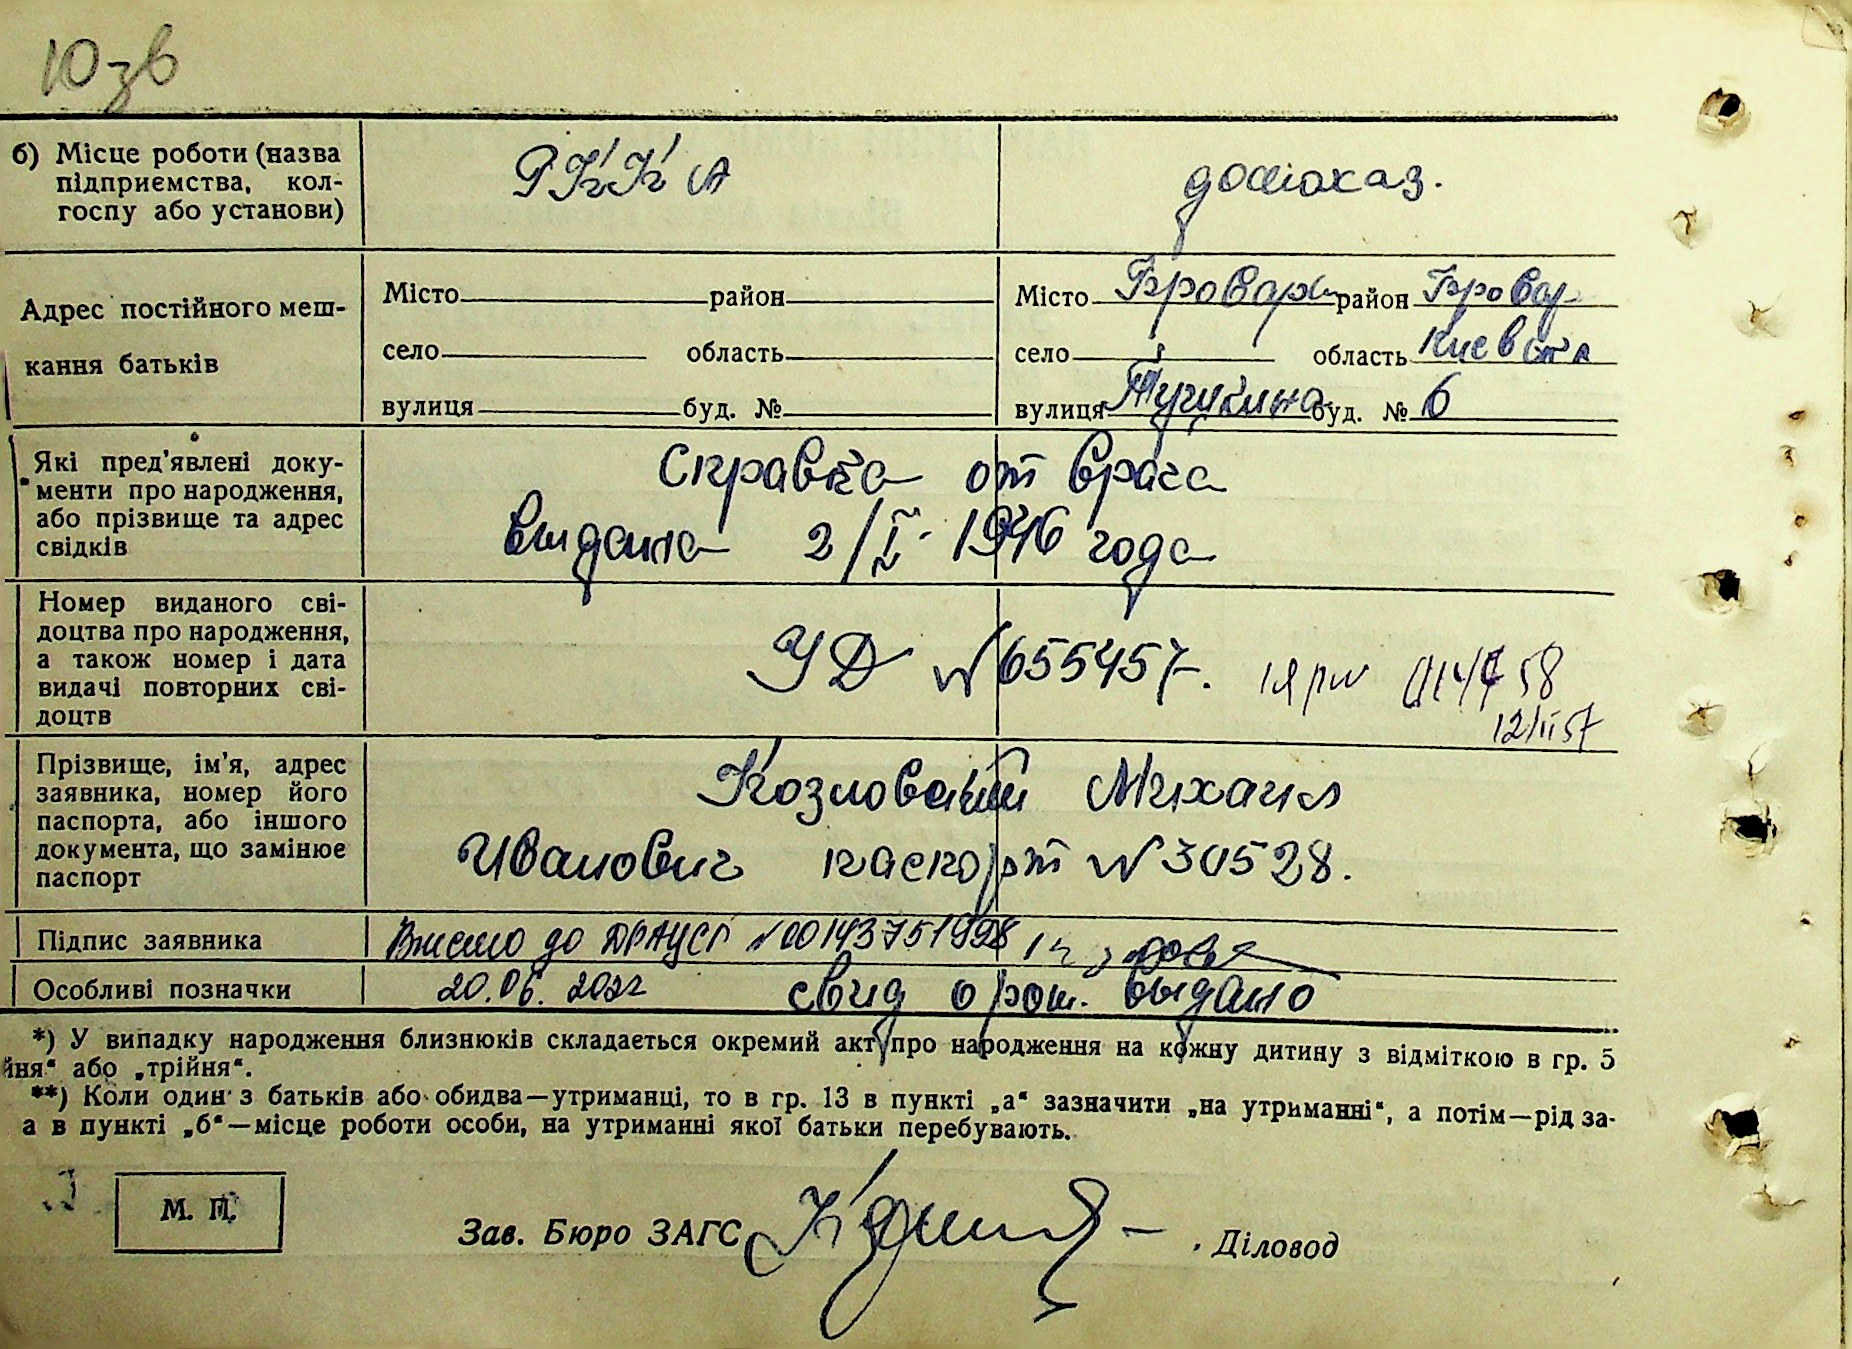 10 зв
б) Місце роботи (назва
підприємства, кол-
госпу або установи)
РККА
домохаз.
Адрес постійного меш-
кання батьків
Місто район
село область
вулиця буд. №
Місто Бровары район Бровар
село область Киевска
вулиця буд. № 6
Які пред'явлені доку-
менти про народження,
або прізвище та адрес
свідків
Справка от врача
выдана 2/I - 1946 года
Номер виданого сві-
доцтва про народження,
а також номер і дата
видачі повторних сві-
доцтв
УД № 655457.
12/III 57
Прізвище, ім'я, адрес
заявника, номер його
паспорта, або іншого
документа, що замінює
паспорт
Козловский Михаил
Иванович паспорт № 30528.
Підпис заявника
Внесено до ДРАЦСГ № 00143751998
Особливі позначки
20.06.2022 свид о рож. выдано
*) У випадку народження близнюків складається окремий акт про народження на кожну дитину з відміткою в гр. 5
йня“ або „трійня“.
**) Коли один з батьків або обидва—утриманці, то в гр. 13 в пункті „а“ зазначити „на утриманні“, а потім—рід за-
а в пункті „б“—місце роботи особи, на утриманні якої батьки перебувають.
М. П.
Зав. Бюро ЗАГС
Діловод